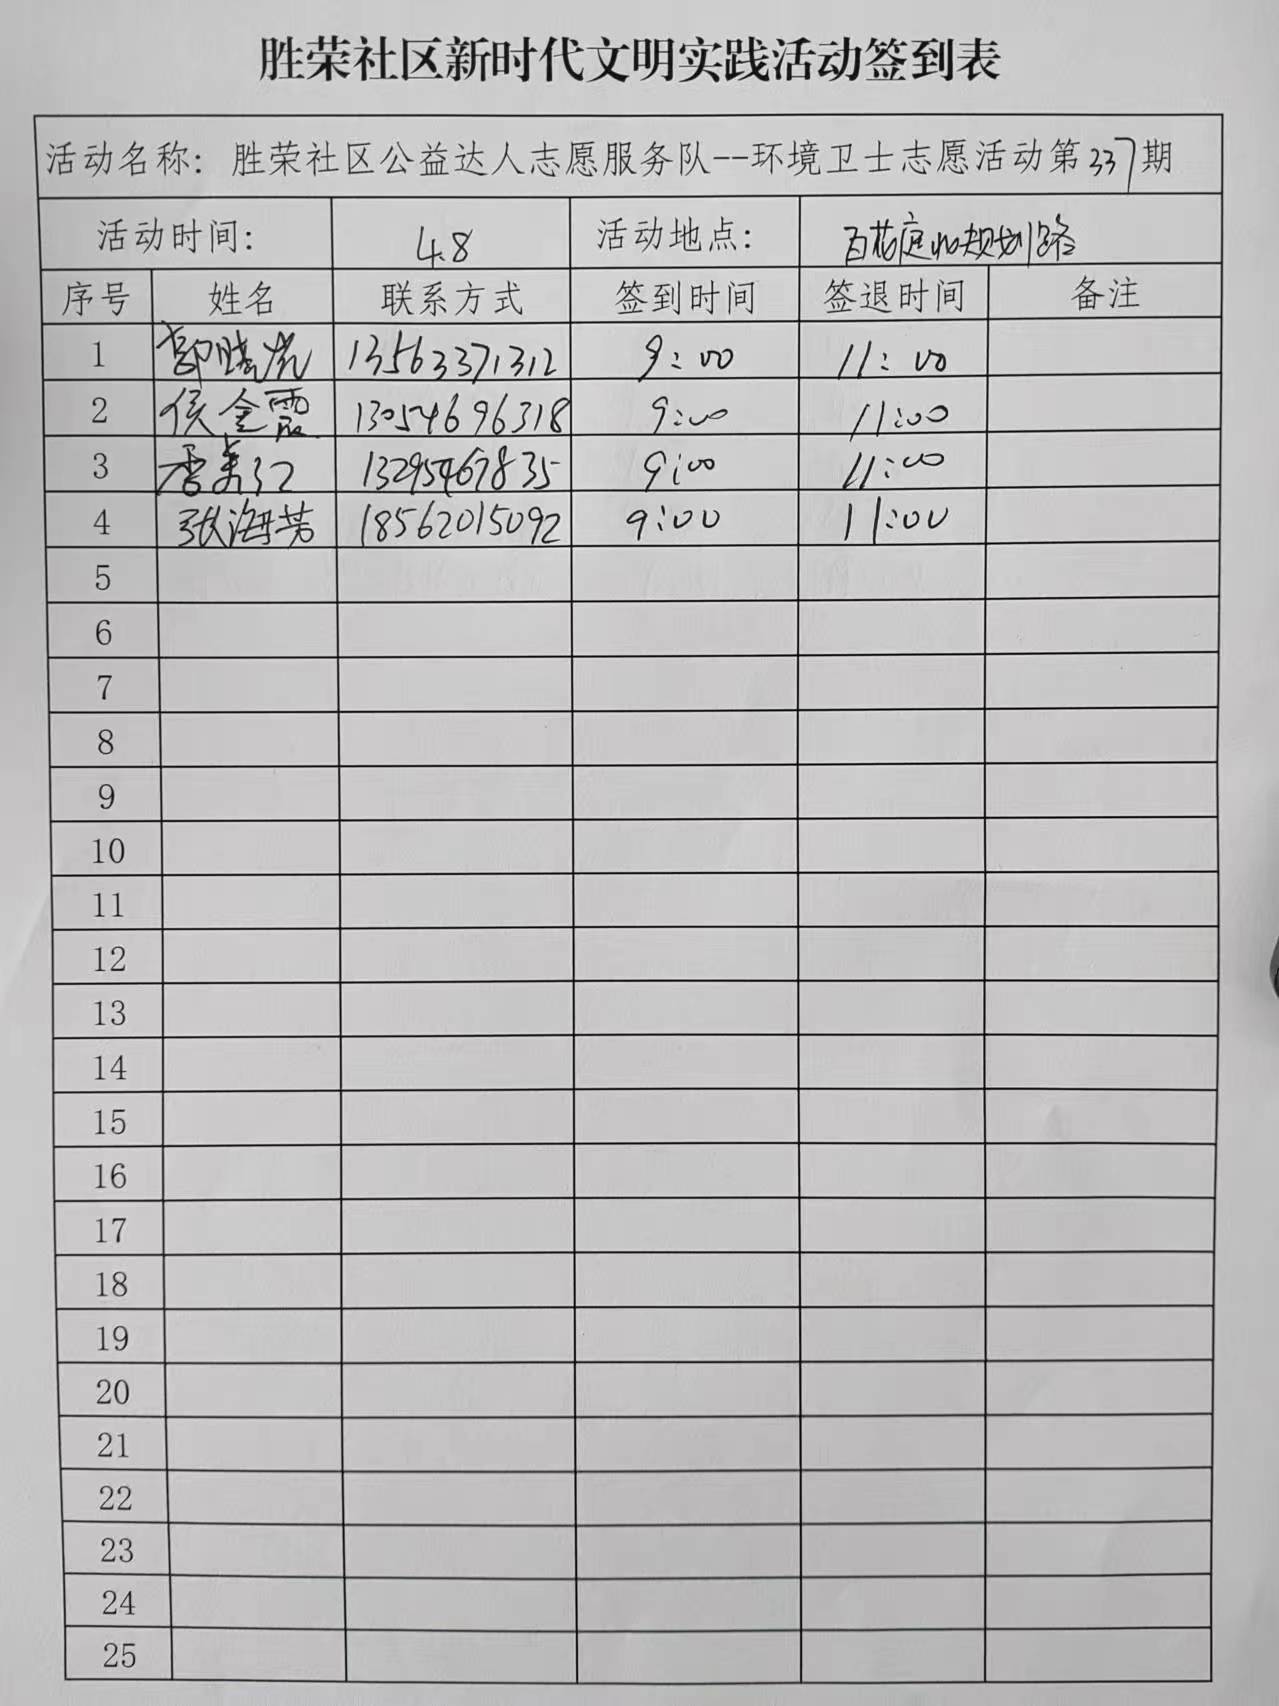 胜荣社区新时代文明实践活动签到表
活动名称：胜荣社区公益达人志愿服务队--环境卫士志愿活动第337期
活动时间： 4.8 活动地点： 百花庭北规划路
序号 姓名 联系方式 签到时间 签退时间 备注
1 郭晓虎 13563371312 9:00 11:00
2 侯金霞 13054696318 9:00 11:00
3 13295467835 9:00 11:00
4 张海芳 18562015092 9:00 11:00
5
6
7
8
9
10
11
12
13
14
15
16
17
18
19
20
21
22
23
24
25